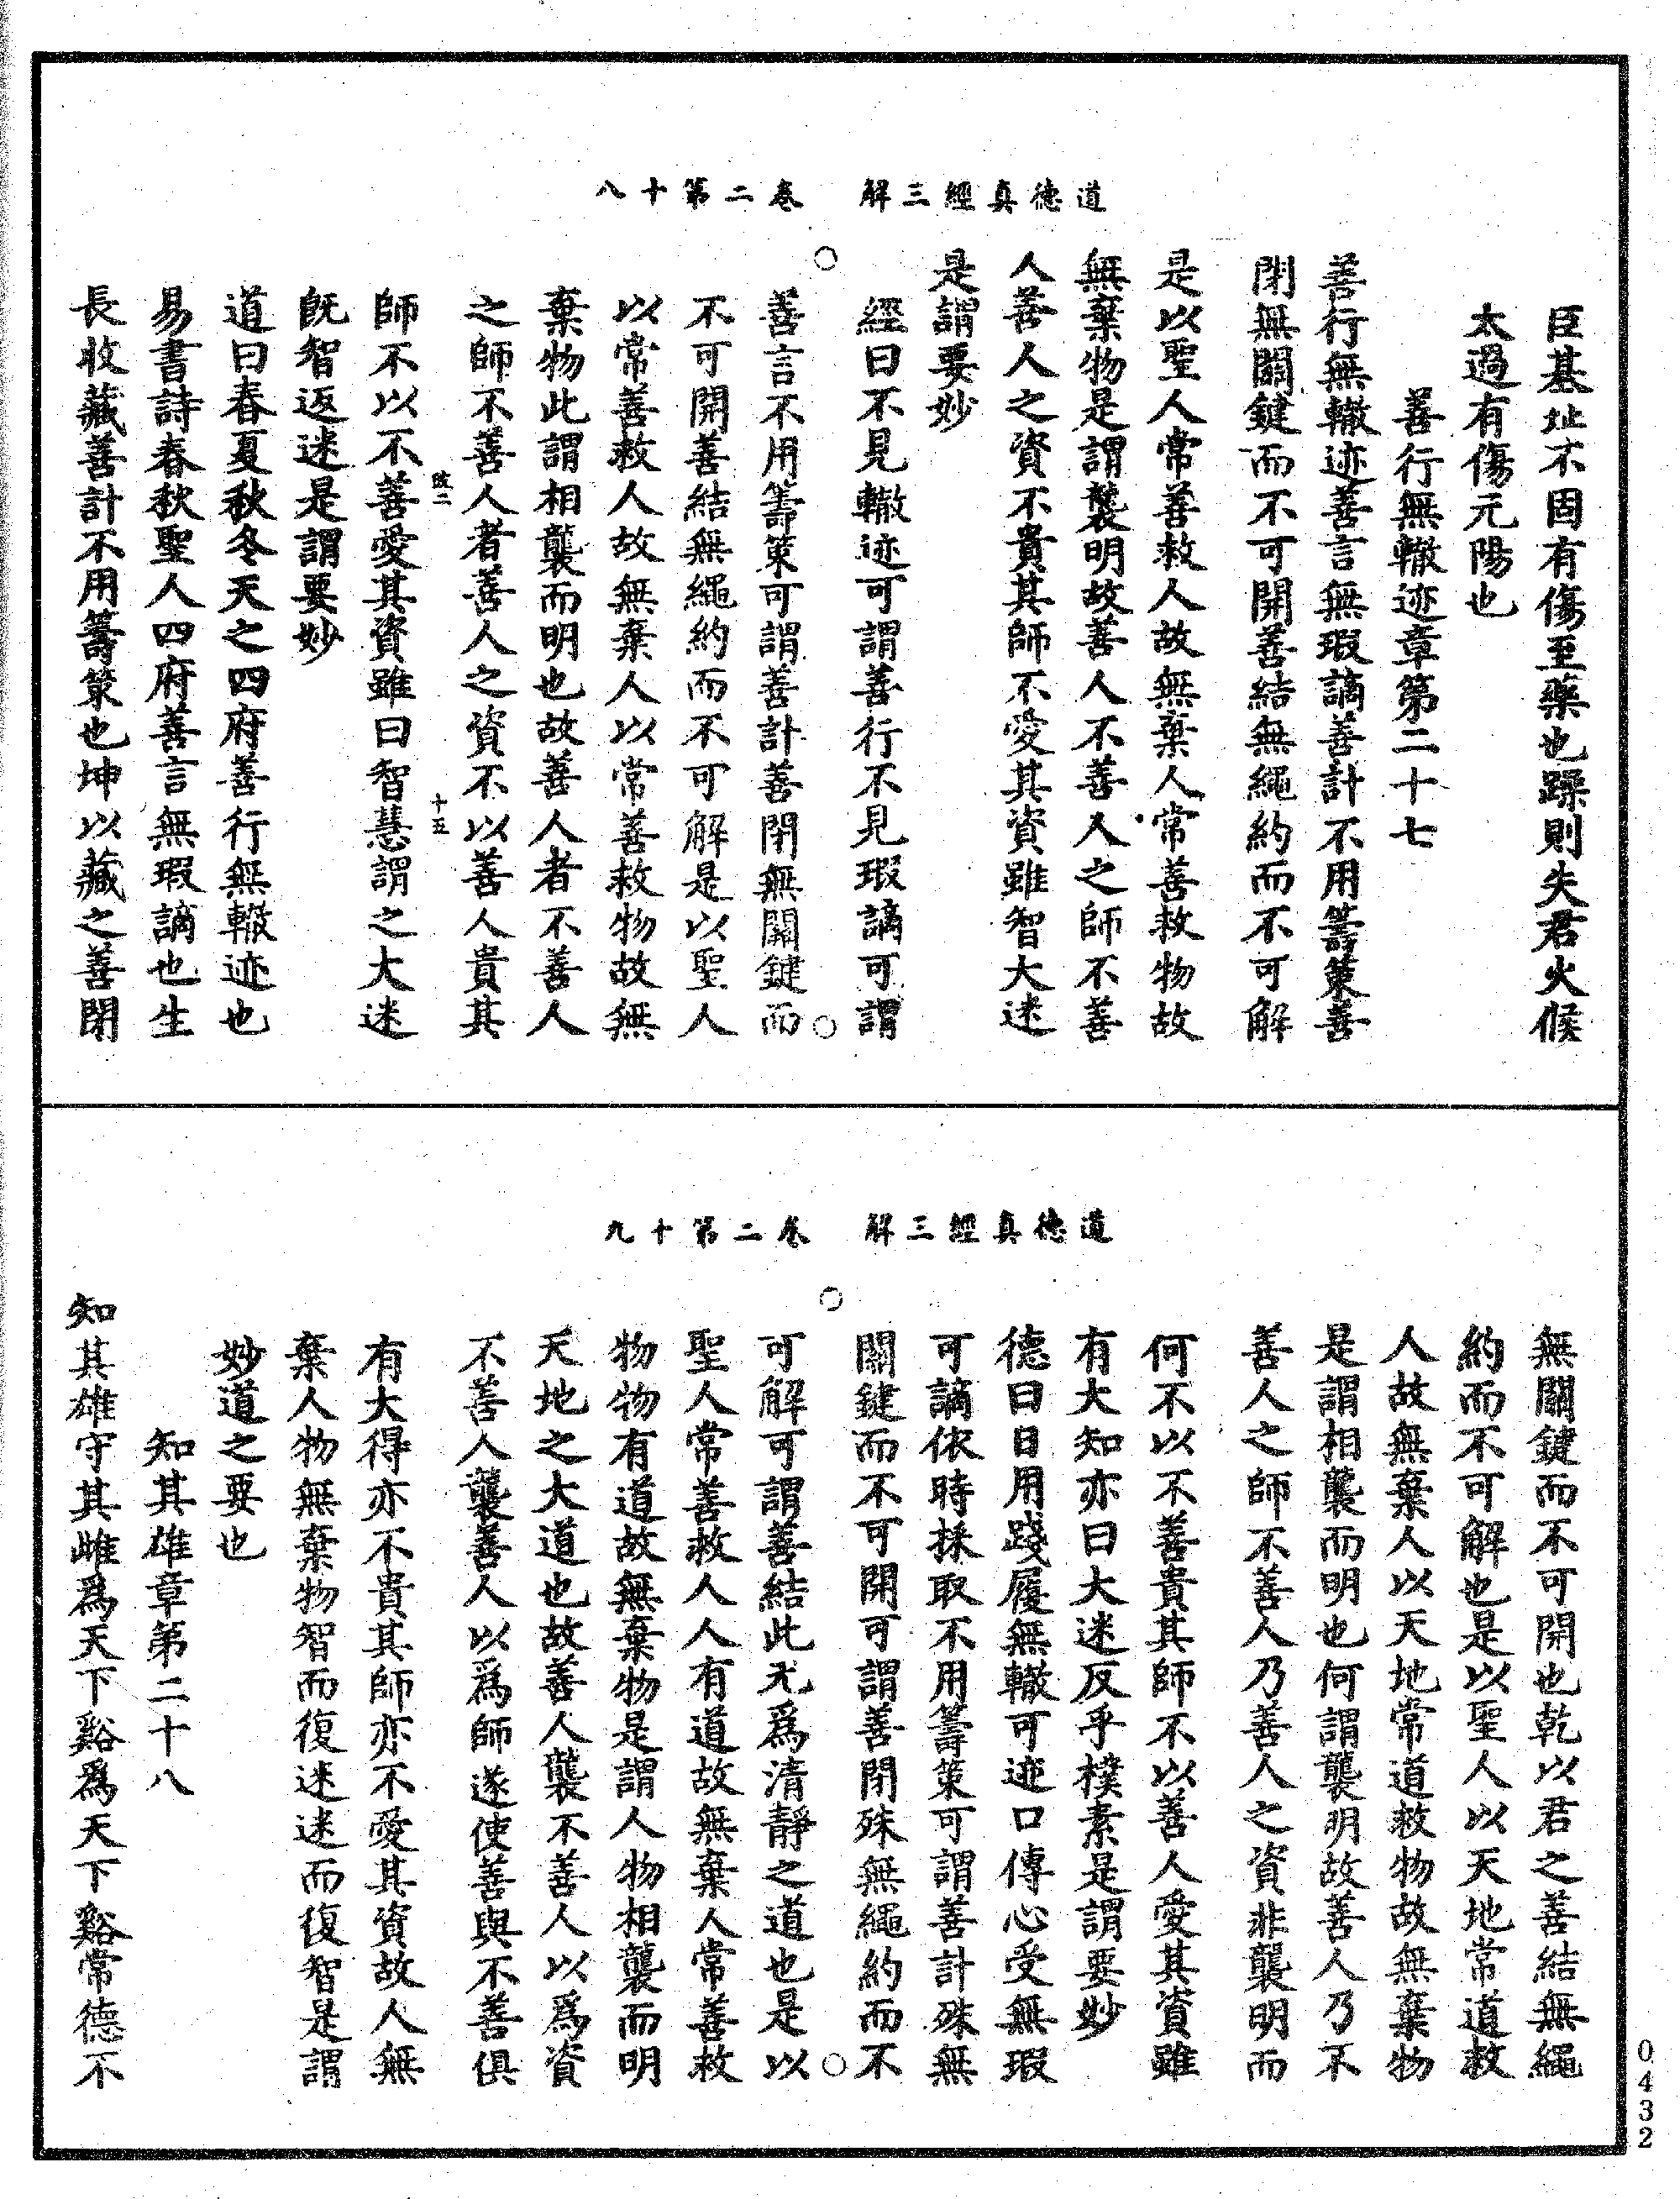 道德真經三解　卷二第十八
臣基址不固有傷至藥也躁則失君火候
太過有傷元陽也
善行無轍迹章第二十七
善行無轍迹善言無瑕謫善計不用籌策善
閉無關鍵而不可開善結無繩約而不可解
是以聖人常善救人故無棄人常善救物故
無棄物是謂襲明故善人不善人之師不善
人善人之資不貴其師不愛其資雖智大迷
是謂要妙
經曰不見轍迹可謂善行不見瑕謫可謂
善言不用籌策可謂善計善閉無關鍵而
不可開善結無繩約而不可解是以聖人
以常善救人故無棄人以常善救物故無
棄物此謂相襲而明也故善人者不善人
之師不善人者善人之資不以善人貴其
十五
師不以不善愛其資雖曰智慧謂之大迷
既智返迷是謂要妙
道曰春夏秋冬天之四府善行無轍迹也
易書詩春秋聖人四府善言無瑕謫也生
長收藏善計不用籌策也坤以藏之善閉
道德真經三解　卷二第十九
無關鍵而不可開也乾以君之善結無繩
約而不可解也是以聖人以天地常道救
人故無棄人以天地常道救物故無棄物
是謂相襲而明也何謂襲明故善人乃不
善人之師不善人乃善人之資非襲明而
何不以不善貴其師不以善人愛其資雖
有大知亦曰大迷反乎樸素是謂要妙
德曰日用踐履無轍可迹口傳心受無瑕
可謫依時採取不用籌策可謂善計殊無
關鍵而不可開可謂善閉殊無繩約而不
可解可謂善結此尤為清靜之道也是以
聖人常善救人人有道故無棄人常善救
物物有道故無棄物是謂人物相襲而明
天地之大道也故善人襲不善人以為資
不善人襲善人以為師遂使善與不善俱
有大得亦不貴其師亦不愛其資故人無
棄人物無棄物智而復迷迷而復智是謂
妙道之要也
知其雄章第二十八
知其雄守其雌為天下谿為天下谿常德不
0432